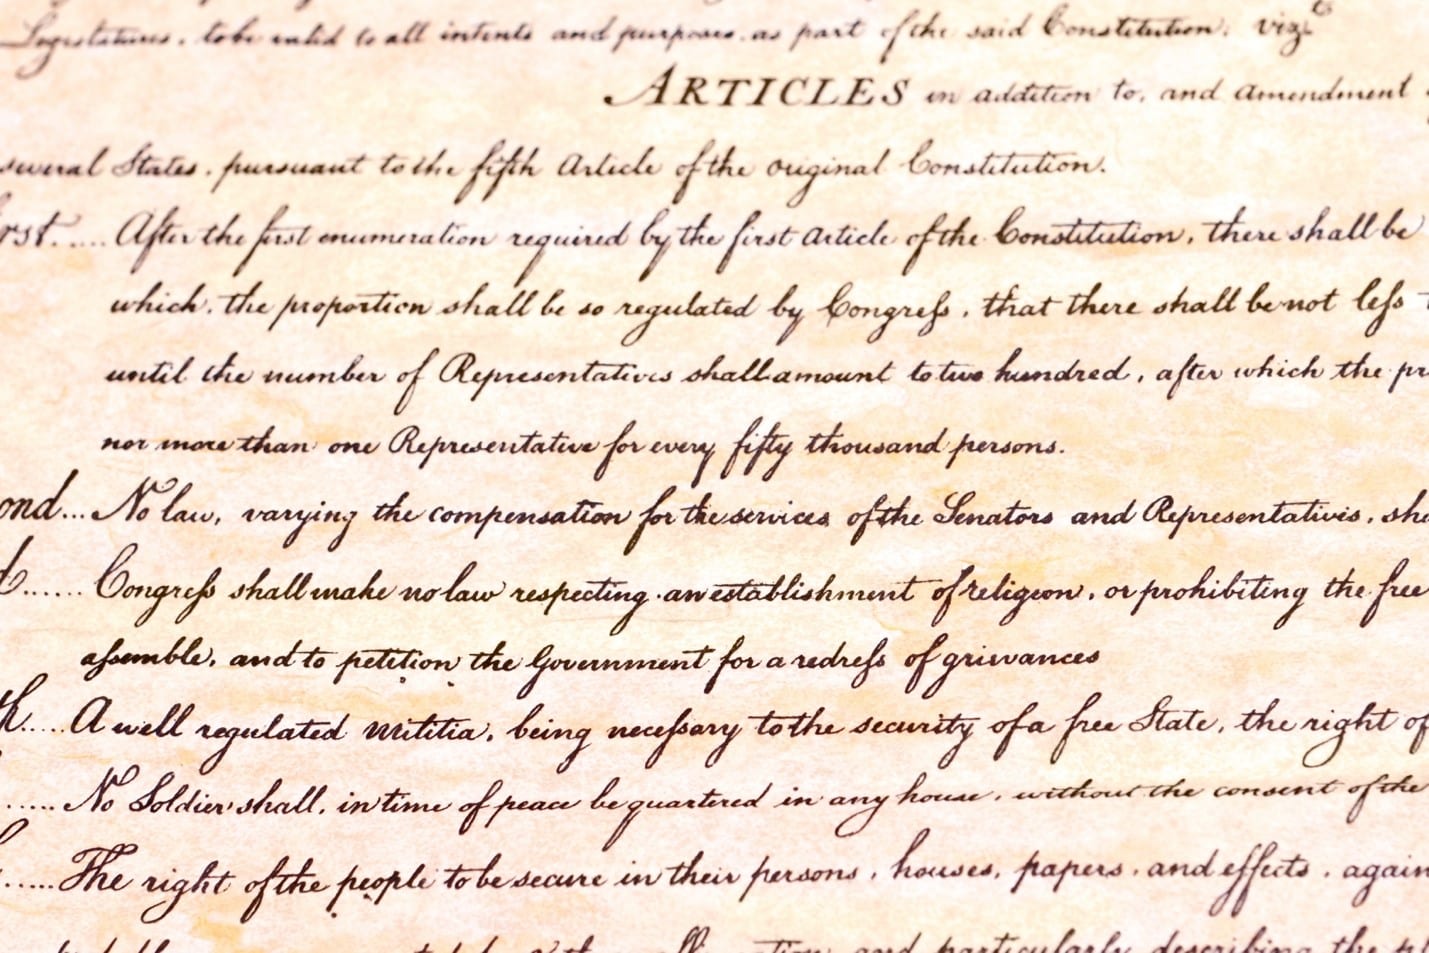 Legislatures, to be valid to all intents and purposes, as part of the said Constitution; vizt
ARTICLES in addition to, and amendment
several States, pursuant to the fifth Article of the original Constitution.
rst..... After the first enumeration required by the first Article of the Constitution, there shall be
which, the proportion shall be so regulated by Congreſs, that there shall be not leſs
until the number of Representatives shall amount to two hundred, after which the pr
nor more than one Representative for every fifty thousand persons.
ond... No law, varying the compensation for the services of the Senators and Representatives, sha
d...... Congreſs shall make no law respecting an establishment of religion, or prohibiting the free
aſsemble, and to petition the Government for a redreſs of grievances
th..... A well regulated militia, being neceſsary to the security of a free State, the right of
..... No Soldier shall, in time of peace be quartered in any house, without the consent of the
..... The right of the people to be secure in their persons, houses, papers, and effects, again
and particularly describing the pl